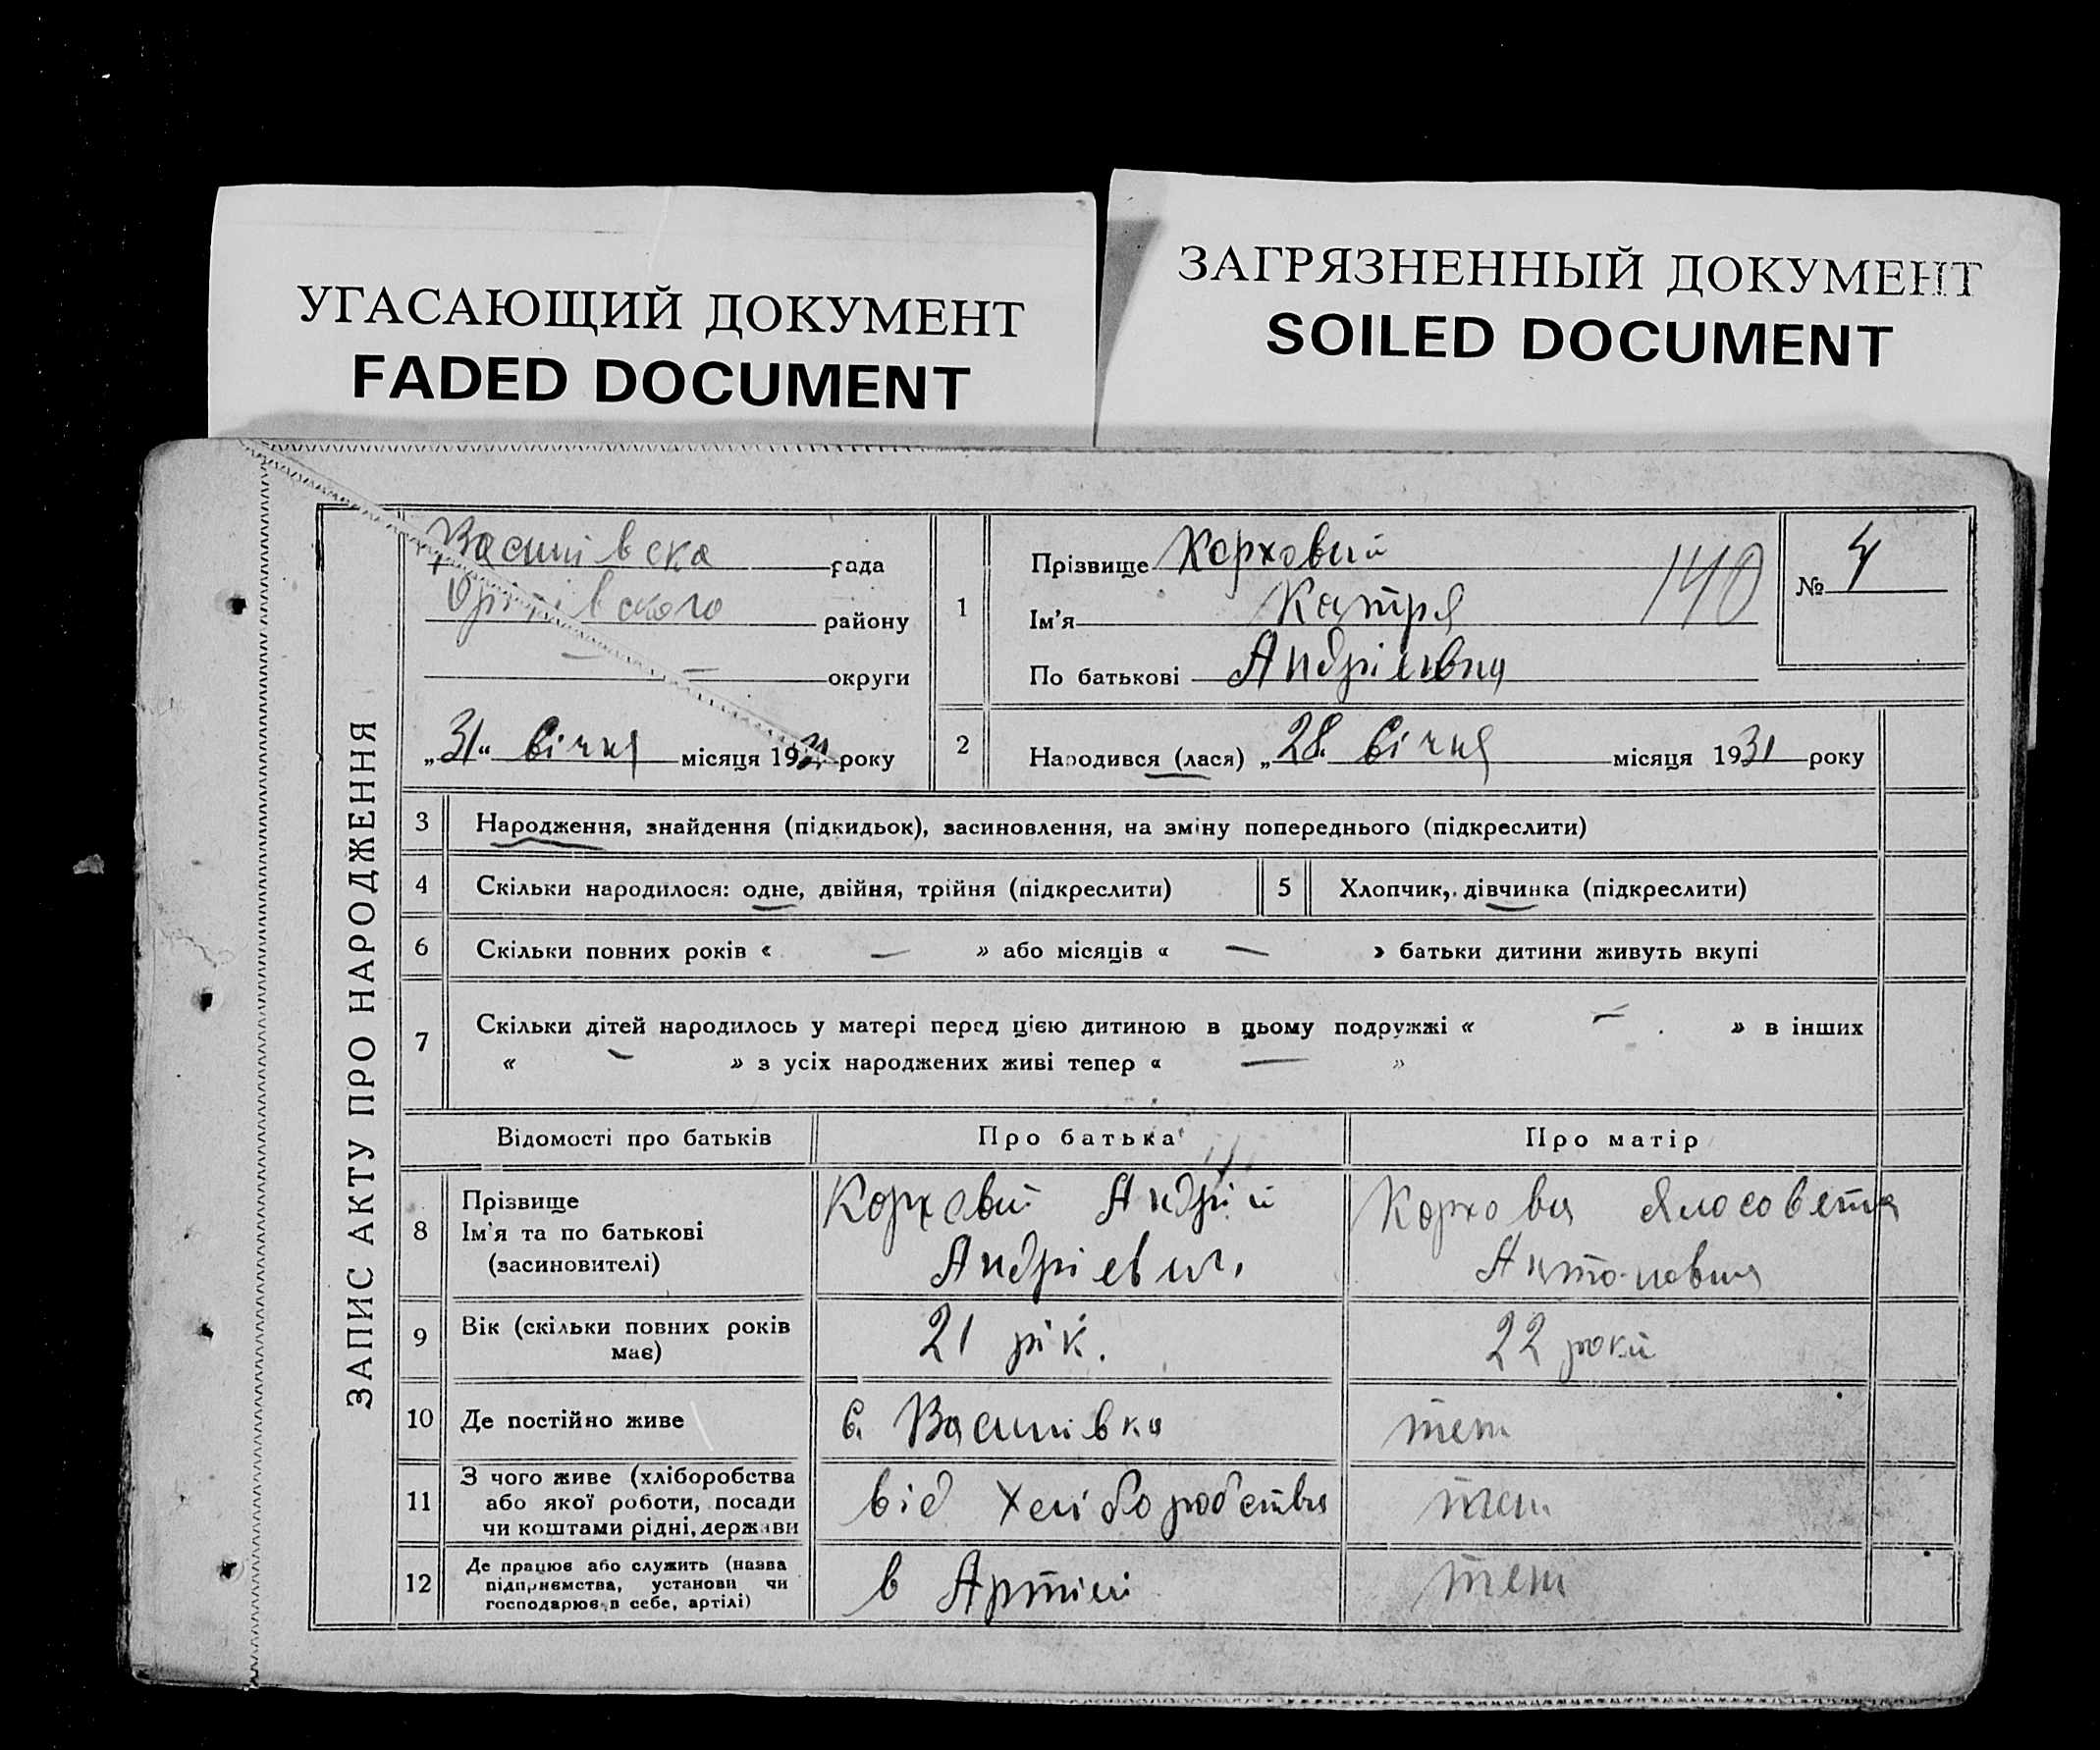 УГАСАЮЩИЙ ДОКУМЕНТ
FADED DOCUMENT
ЗАГРЯЗНЕННЫЙ ДОКУМЕНТ
SOILED DOCUMENT
ЗАПИС АКТУ ПРО НАРОДЖЕННЯ
Василівска рада
району
округи
„31“ Січня місяця 1931 року
1
Прізвище Корховий
Ім'я Катря
По батькові Андріівна
140
№ 4
2
Народився (лася) „28. Січня місяця 1931 року
3 Народження, знайдення (підкидьок), засиновлення, на зміну попереднього (підкреслити)
4 Скільки народилося: одне, двійня, трійня (підкреслити)
5 Хлопчик, дівчинка (підкреслити)
6 Скільки повних років « — » або місяців « — » батьки дитини живуть вкупі
7 Скільки дітей народилось у матері перед цією дитиною в цьому подружжі « — » в інших
« — » з усіх народжених живі тепер « — »
Відомості про батьків Про батька Про матір
8
Прізвище
Ім'я та по батькові
(засиновителі)
Корховий Андрій
Андріевич
Корхова
Антоновна
9
Вік (скільки повних років
має)
21 рік.
22 роки
10 Де постійно живе
с. Василівка
теж
11
З чого живе (хліборобства
або якої роботи, посади
чи коштами рідні, держави
від хліборобства
теж
12
Де працює або служить (назва
підприємства, установи чи
господарює в себе, артілі)
в Артілі
теж